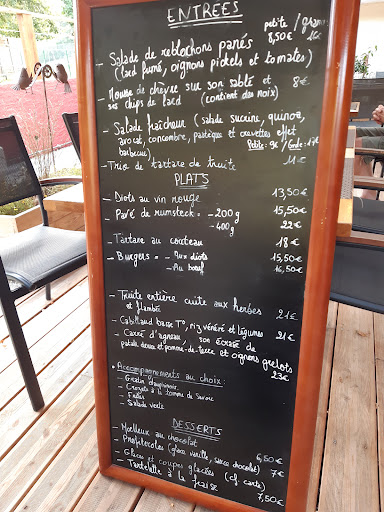 ENTREES
petite / grande
- Salade de reblochons panés 8,50€ 15€
(lard fumé, oignons pickels et tomates)
- Mousse de chèvre sur son sablé et 8€
ses chips de lard (contient des noix)
- Salade fraîcheur (salade sucrine, quinoa,
avocat, concombre, pastèque et crevettes effet
barbecue) Petite: 9€ / Grande:
- Trio de tartare de truite 11€
PLATS
- Diots au vin rouge 13,50€
- Pavé de rumsteck - 200g 15,50€
- 400g 22€
- Tartare au couteau 18€
- Burgers - Aux diots 15,50€
- Au boeuf 16,50€
- Truite entière cuite aux herbes 21€
et flambée
- Cabillaud basse T°, riz vénéré et légumes 21€
- Carré d'agneau, son écrasé de
patate douce et pomme-de-terre et oignons grelots
23€
Accompagnements au choix:
- Gratin dauphinois
- Crozets à la tomme de Savoie
- Frites
- Salade verte
DESSERTS
- Moelleux au chocolat 6,50€
- Profiteroles (glace vanille, sauce chocolat) 7€
- Glaces et coupes glacées (cf carte)
- Tartelette à la fraise 7,50€